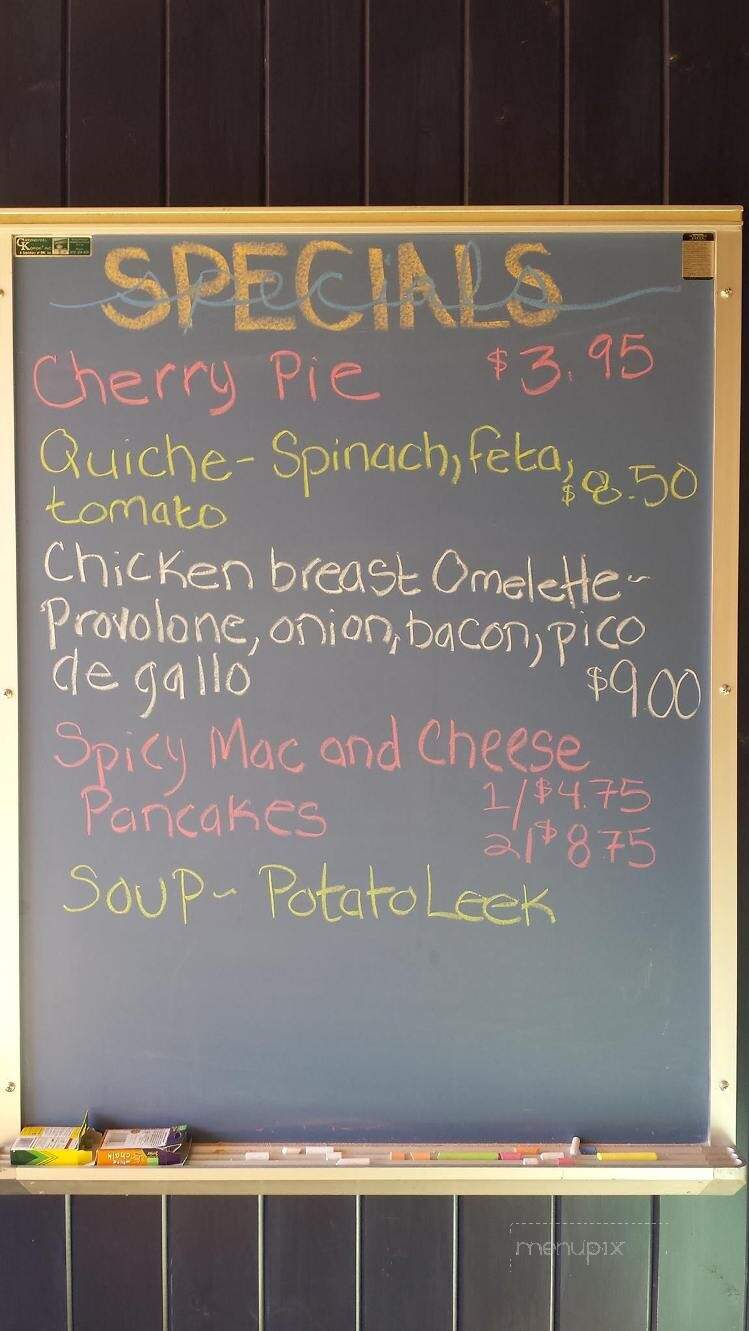 SPECIALS
specials
Cherry Pie $3.95
Quiche- Spinach, feta,
tomato $8.50
Chicken breast Omelette~
Provolone, onion, bacon, pico
de gallo $9.00
Spicy Mac and Cheese
Pancakes 1/$4.75
2/$8.75
Soup~ Potato Leek
menupix